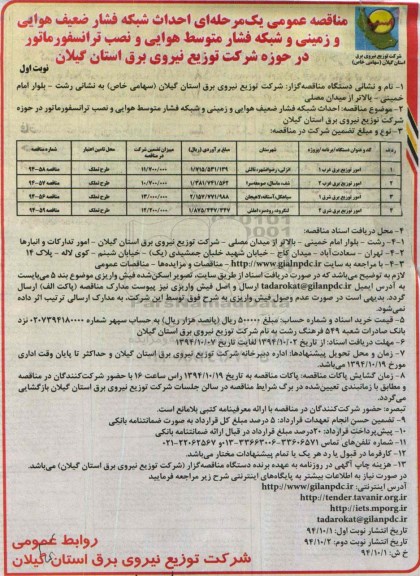 مناقصه عمومی یک‌مرحله‌ای احداث شبکه فشار ضعیف هوایی
و زمینی و شبکه فشار متوسط هوایی و نصب ترانسفورماتور
در حوزه شرکت توزیع نیروی برق استان گیلان
شرکت توزیع نیروی برق
استان گیلان (سهامی خاص)
نوبت اول
۱- نام و نشانی دستگاه مناقصه‌گزار: شرکت توزیع نیروی برق استان گیلان (سهامی خاص) به نشانی رشت - بلوار امام
خمینی - بالاتر از میدان مصلی
۲- موضوع مناقصه: احداث شبکه فشار ضعیف هوایی و زمینی و شبکه فشار متوسط هوایی و نصب ترانسفورماتور در حوزه
شرکت توزیع نیروی برق استان گیلان
۳- نوع و مبلغ تضمین شرکت در مناقصه:
ردیف کد و عنوان دستگاه/برنامه/پروژه شهرستان مبلغ برآوردی (ریال) میزان تضمین شرکت در مناقصه محل تامین اعتبار شماره مناقصه
۱ امور توزیع برق غرب ۱ طرح تملک ۹۴-۵۸
۲ امور توزیع برق غرب ۲ طرح تملک ۹۴-۵۶
۳ امور توزیع برق شرق ۱ طرح تملک ۹۴-۵۷
۴ امور توزیع برق شرق ۲ طرح تملک ۹۴-۵۹
۴- محل دریافت اسناد مناقصه:
۴-۱- رشت - بلوار امام خمینی - بالاتر از میدان مصلی - شرکت توزیع نیروی برق استان گیلان - امور تدارکات و انبارها
۴-۲- تهران - سعادت آباد - میدان کاج - خیابان شهید خلبان جمشیدی (یک) - خیابان شبنم - کوی لاله - پلاک ۱۴
۴-۳- با مراجعه به سایت http://www.gilanpdc.ir - مناقصات و مزایده‌ها - مناقصات عمومی
لازم به توضیح می‌باشد که در صورت دریافت اسناد از طریق سایت، تصویر اسکن‌شده فیش واریزی موضوع بند ۵ می‌بایست
به آدرس ایمیل tadarokat@gilanpdc.ir ارسال و اصل فیش واریزی نیز پیوست مدارک مناقصه (پاکت الف) ارسال
گردد. بدیهی است در صورت عدم وصول فیش واریزی به شرح فوق توسط این شرکت، به مدارک ارسالی ترتیب اثر داده
نمی‌شود.
۵- قیمت خرید اسناد و شماره حساب: مبلغ ۵۰۰۰۰۰ ریال (پانصد هزار ریال) به حساب سپهر شماره ۰۲۰۷۳۹۴۱۸۰۰۰۰ نزد
بانک صادرات شعبه ۵۴۹ فرهنگ رشت به نام شرکت توزیع نیروی برق استان گیلان
۶- مهلت دریافت اسناد: از تاریخ ۱۳۹۴/۱۰/۰۲ لغایت تاریخ ۱۳۹۴/۱۰/۰۷
۷- زمان و محل تحویل پیشنهادها: اداره دبیرخانه شرکت توزیع نیروی برق استان گیلان و حداکثر تا پایان وقت اداری
مورخ ۱۳۹۴/۱۰/۱۹ می‌باشد.
۸- زمان گشایش پاکات مناقصه: پاکات مناقصه به تاریخ ۱۳۹۴/۱۰/۱۹ راس ساعت ۱۶ با حضور شرکت‌کنندگان در مناقصه
و مطابق با زمانبندی تعیین‌شده در برگ شرایط مناقصه در سالن جلسات شرکت توزیع نیروی برق استان گیلان بازگشایی
می‌گردد.
تبصره: حضور شرکت‌کنندگان در مناقصه با ارائه معرفینامه کتبی بلامانع است.
۹- تضمین حسن انجام تعهدات قرارداد: ۵ درصد مبلغ کل قرارداد به صورت ضمانتنامه بانکی
۱۰- پیش‌پرداخت قرارداد: ۲۰درصد مبلغ قرارداد در قبال ارائه ضمانتنامه بانکی
۱۱- شماره تلفن‌های تماس ۳۳۶۰۶۵۷۱-۰۱۳ و ۳۳۶۶۳۰۰۶-۰۱۳ و ۲۲۰۶۲۵۶۷-۰۲۱
۱۲- کارفرما در قبول یا رد هر یک یا تمام پیشنهادات مختار می‌باشد.
۱۳- هزینه چاپ آگهی در روزنامه به عهده برنده دستگاه مناقصه‌گزار (شرکت توزیع نیروی برق استان گیلان) می‌باشد.
در صورت نیاز به اطلاعات بیشتر به پایگاه‌های اینترنتی شرح زیر مراجعه فرمایید
آدرس اینترنتی: http://www.gilanpdc.ir
http://tender.tavanir.org.ir
http://iets.mporg.ir
tadarokat@gilanpdc.ir
تاریخ انتشار نوبت اول: ۹۴/۱۰/۱
تاریخ انتشار نوبت دوم: ۹۴/۱۰/۲
خ ش: ۹۴/۱۰/۱
روابط عمومی
شرکت توزیع نیروی برق استان گیلان